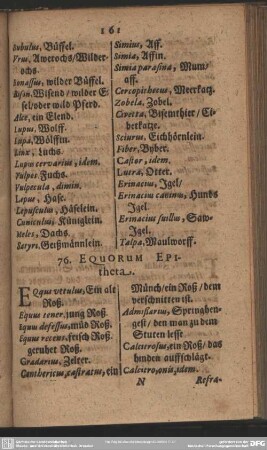 161
Bubulus, Büffel.
Vrus, Awerochs/Wilder-
ochs
Bonassus, wilder Büffel.
Bison, Wisend/wilder E-
sel/oder wild Pferd.
Alce, ein Elend.
Lupus, Wolff.
Lupa, Wölffin.
Linx, Luchs.
Lupus cervarius, idem.
Vulpes Fuchs.
Vulpecula, dimin.
Lepus, Hase.
Lepusculus, Häselein.
Cuniculus, Küniglein.
Meles, Dachs.
Satyrs, Geißmännlein.
Simius, Aff.
Simia, Affin.
Simia parasina, Mum/
aff.
Cercopithecus, Meerkatz.
Zobela, Zobel.
Civetta, Bisemthier/Ci-
betkatze.
Sciurus, Eichhörnlein.
Fiber, Byber.
Castor, idem.
Lutra, Otter.
Erinacius, Igel/
Erinacius caninus, Hunds
Igel.
Erinacius suillus, Saw-
Igel.
Talpa, Maulworff.
76. EQUORUM EPI-
theta.
EQuus vetulus, Ein alt
Roß.
Equus tener, jung Roß.
Equus defessus, müd Roß.
Equus recens, frisch Roß.
geruhet Roß.
Gradarius, Zelter.
Canthericus, castratus, ein
Münch/ein Roß/dem
verschnitten ist.
Admissarius, Springhen-
gest/den man zu dem
Stuten lesst
Calcitrosus, ein Roß/das
hinden auffschlägt.
Calcitro, onis, idem.
N
Refra-